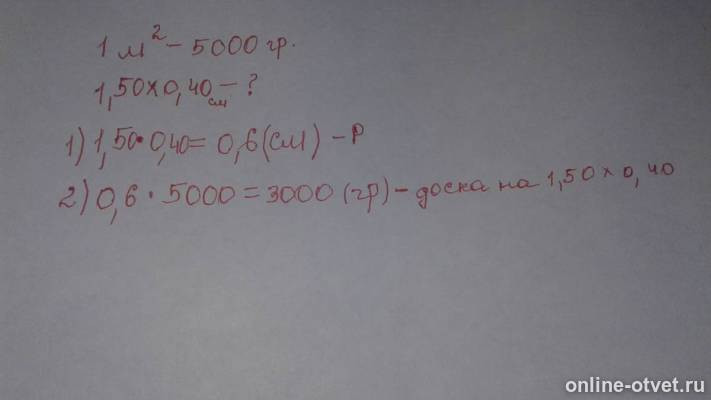 1 м² – 5000 гр.
1,50×0,40 – ?
см
1) 1,50·0,40 = 0,6 (см) – Р
2) 0,6 · 5000 = 3000 (гр) – доска на 1,50 × 0,40
online-otvet.ru